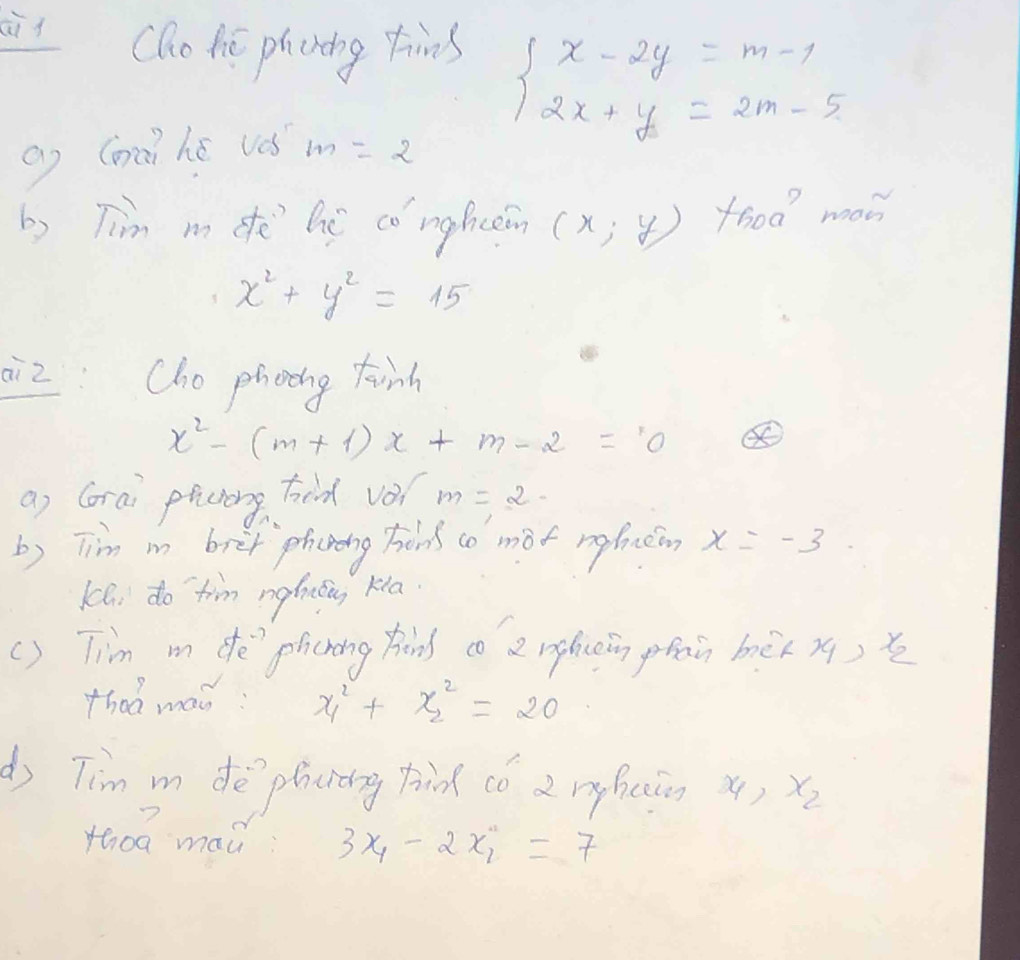 ài 1 Cho hệ phương trình { x - 2y = m - 1
2x + y = 2m - 5
a) Giải hệ với m = 2
b) Tìm m để hệ có nghiệm (x; y) thoả mãn
x² + y² = 15
ài 2 : Cho phương trình
x² - (m + 1)x + m - 2 = 0 (*)
a) Giải phương trình với m = 2.
b) Tìm m biết phương trình có một nghiệm x = -3.
Khi đó tìm nghiệm kia.
c) Tìm m để phương trình có 2 nghiệm phân biệt x₁, x₂
thoả mãn : x₁² + x₂² = 20
d) Tìm m để phương trình có 2 nghiệm x₁, x₂
thoả mãn : 3x₁ - 2x₂ = 7